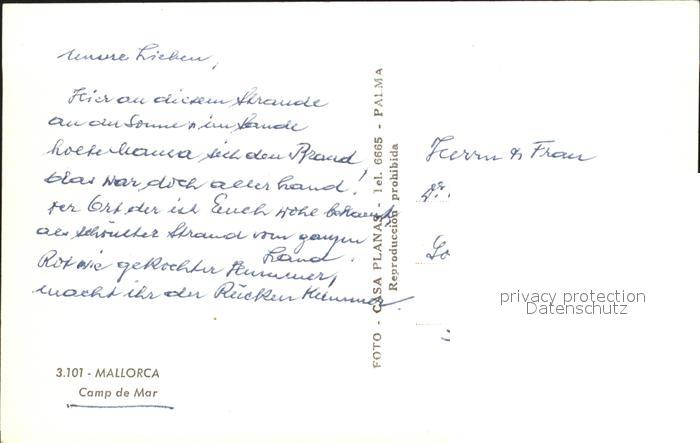 Unsere Lieben,
Hier an diesem Strande
an der Sonne & im Sande
holte Mama sich den Brand
das war doch allerhand!
der Ort der ist Euch wohl bekannt
als schönster Strand vom ganzen
Land.
Rot wie gekochter Hummer,
macht ihr der Rücken Kummer.
3.101 - MALLORCA
Camp de Mar
FOTO - CASA PLANAS - Tel. 6665 - PALMA
Reproducción prohibida
Herrn & Frau
Dr.
privacy protection
Datenschutz